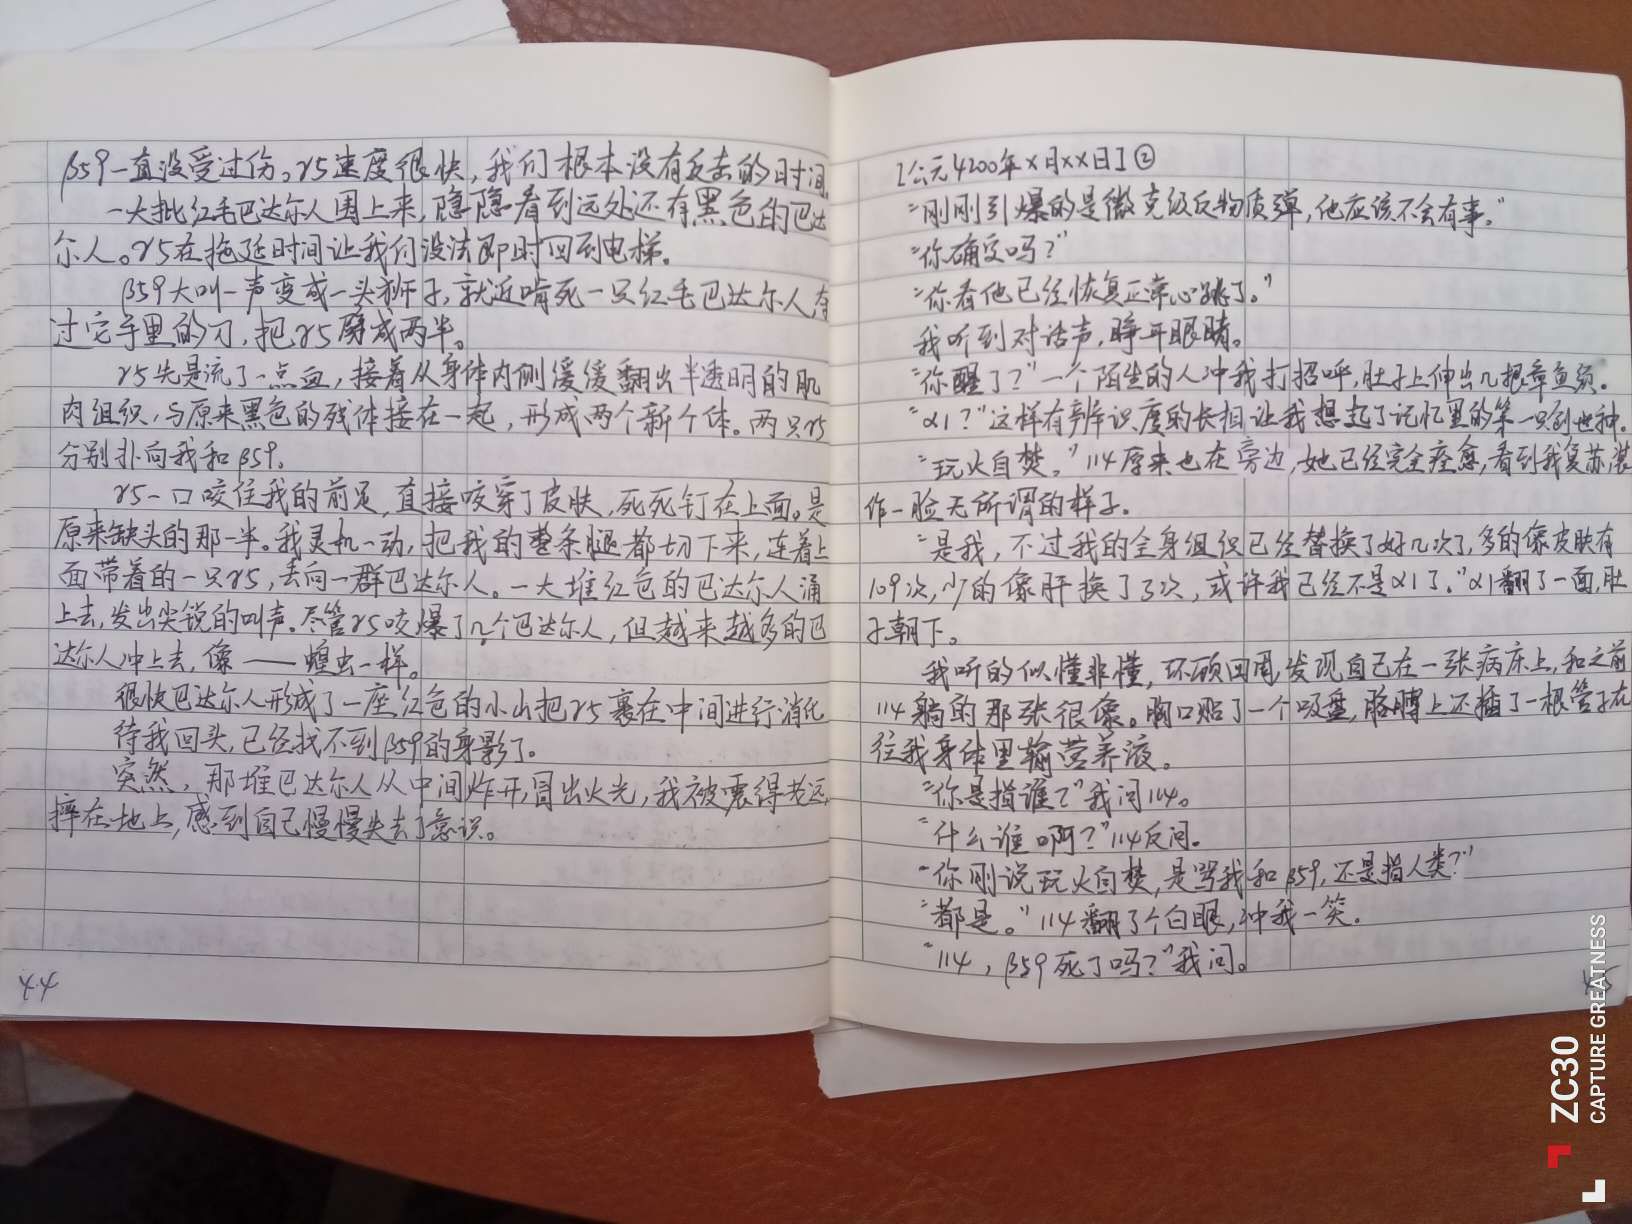 β59一直没受过伤。γ5速度很快，我们根本没有反击的时间。
一大批红毛巴达尔人围上来，隐隐看到远处还有黑色的巴达
尔人。γ5在拖延时间让我们没法即时回到电梯。
β59大叫一声变成一头狮子，就近啃死一只红毛巴达尔人，夺
过它手里的刀，把γ5劈成两半。
γ5先是流了一点血，接着从身体内侧缓缓翻出半透明的肌
肉组织，与原来黑色的残体接在一起，形成两个新个体。两只γ5
分别扑向我和β59。
γ5一口咬住我的前足，直接咬穿了皮肤，死死钉在上面。是
原来缺头的那一半。我灵机一动，把我的整条腿都切下来，连着上
面带着的一只γ5，丢向一群巴达尔人。一大堆红色的巴达尔人涌
上去，发出尖锐的叫声。尽管γ5咬爆了几个巴达尔人，但越来越多的巴
达尔人冲上去，像——蝗虫一样。
很快巴达尔人形成了一座红色的小山把γ5裹在中间进行消化
待我回头，已经找不到β59的身影了。
突然，那堆巴达尔人从中间炸开，冒出火光，我被震得老远，
摔在地上，感到自己慢慢失去了意识。
44
[公元4200年×月××日]②
“刚刚引爆的是微克级反物质弹，他应该不会有事。”
“你确定吗？”
“你看他已经恢复正常心跳了。”
我听到对话声，睁开眼睛。
“你醒了？”一个陌生的人冲我打招呼，肚子上伸出几根章鱼须。
“α1？”这样有辨识度的长相让我想起了记忆里的第一只创世种。
“玩火自焚。”114原来也在旁边，她已经完全痊愈，看到我复苏，装
作一脸无所谓的样子。
“是我，不过我的全身组织已经替换了好几次了，多的像皮肤有
109次，少的像肝换了3次，或许我已经不是α1了。”α1翻了一面，肚
子朝下。
我听的似懂非懂，环顾四周，发现自己在一张病床上，和之前
114躺的那张很像。胸口贴了一个吸盘，胳膊上还插了一根管子在
往我身体里输营养液。
“你是指谁？”我问114。
“什么谁啊？”114反问。
“你刚说玩火自焚，是骂我和β59，还是指人类？”
“都是。”114翻了个白眼，冲我一笑。
“114，β59死了吗？”我问。
45
ZC30
CAPTURE GREATNESS